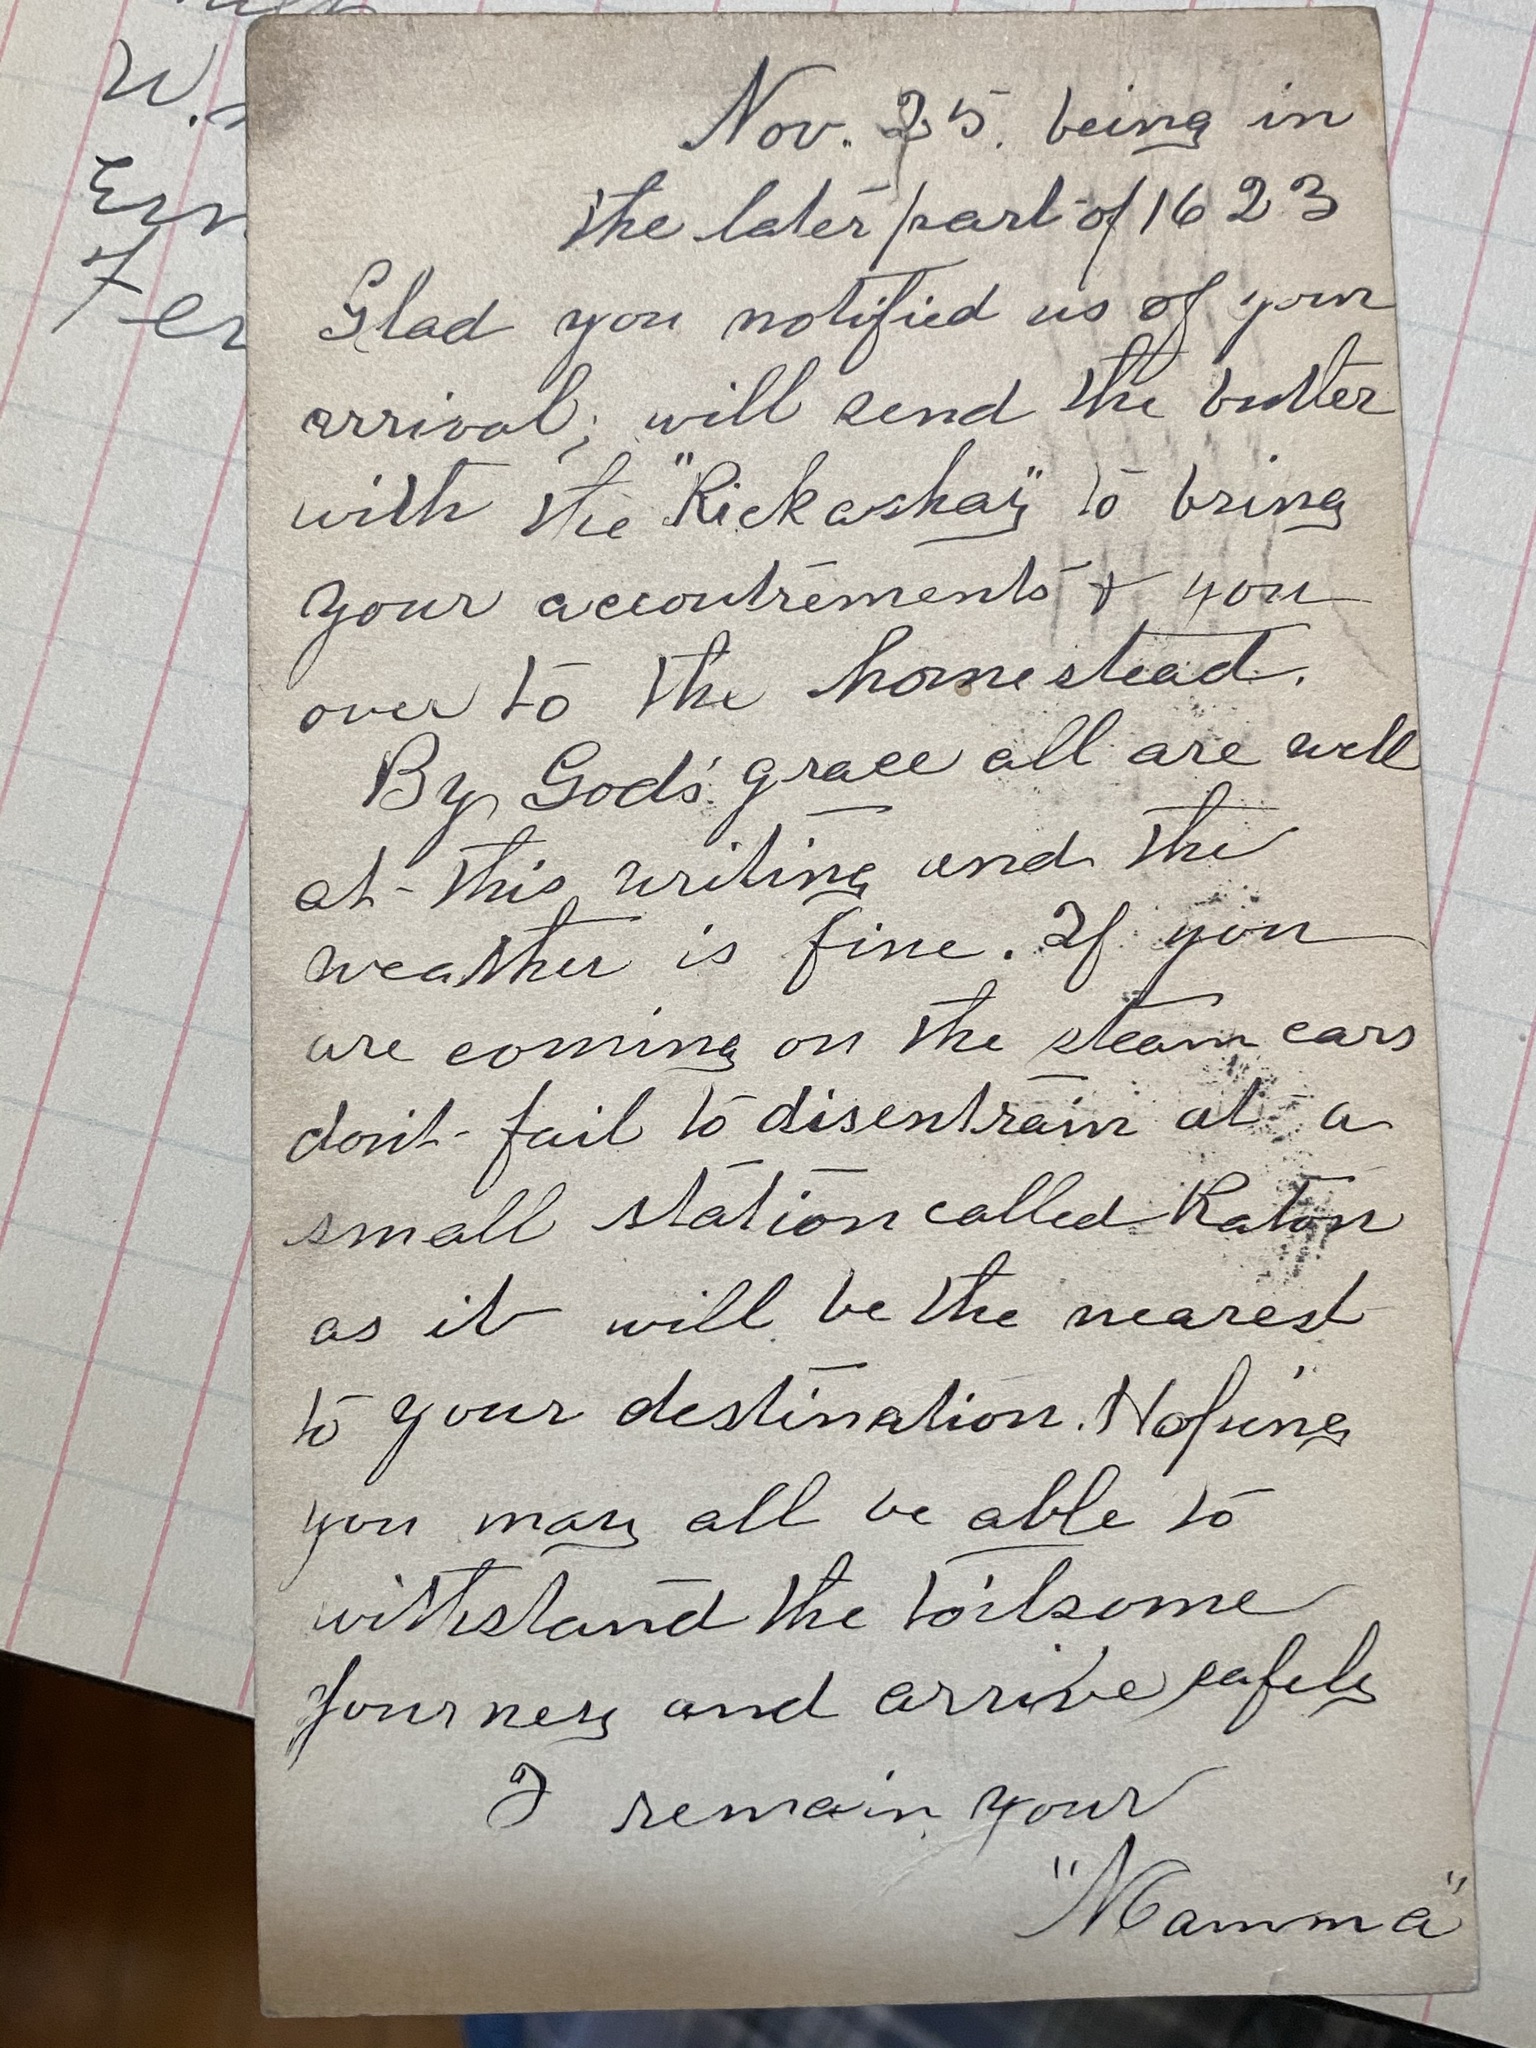 W.
Nov. 25. being in
the later part of 1623
Glad you notified us of your
arrival; will send the butler
with the "Rickashay" to bring
your accoutrements & you
over to the homestead.
By God's grace all are well
at this writing and the
weather is fine. If you
are coming on the steam cars
don't fail to disentrain at a
small station called Raton
as it will be the nearest
to your destination. Hoping
you may all be able to
withstand the toilsome
Journey and arrive safely
I remain your
"Mamma"